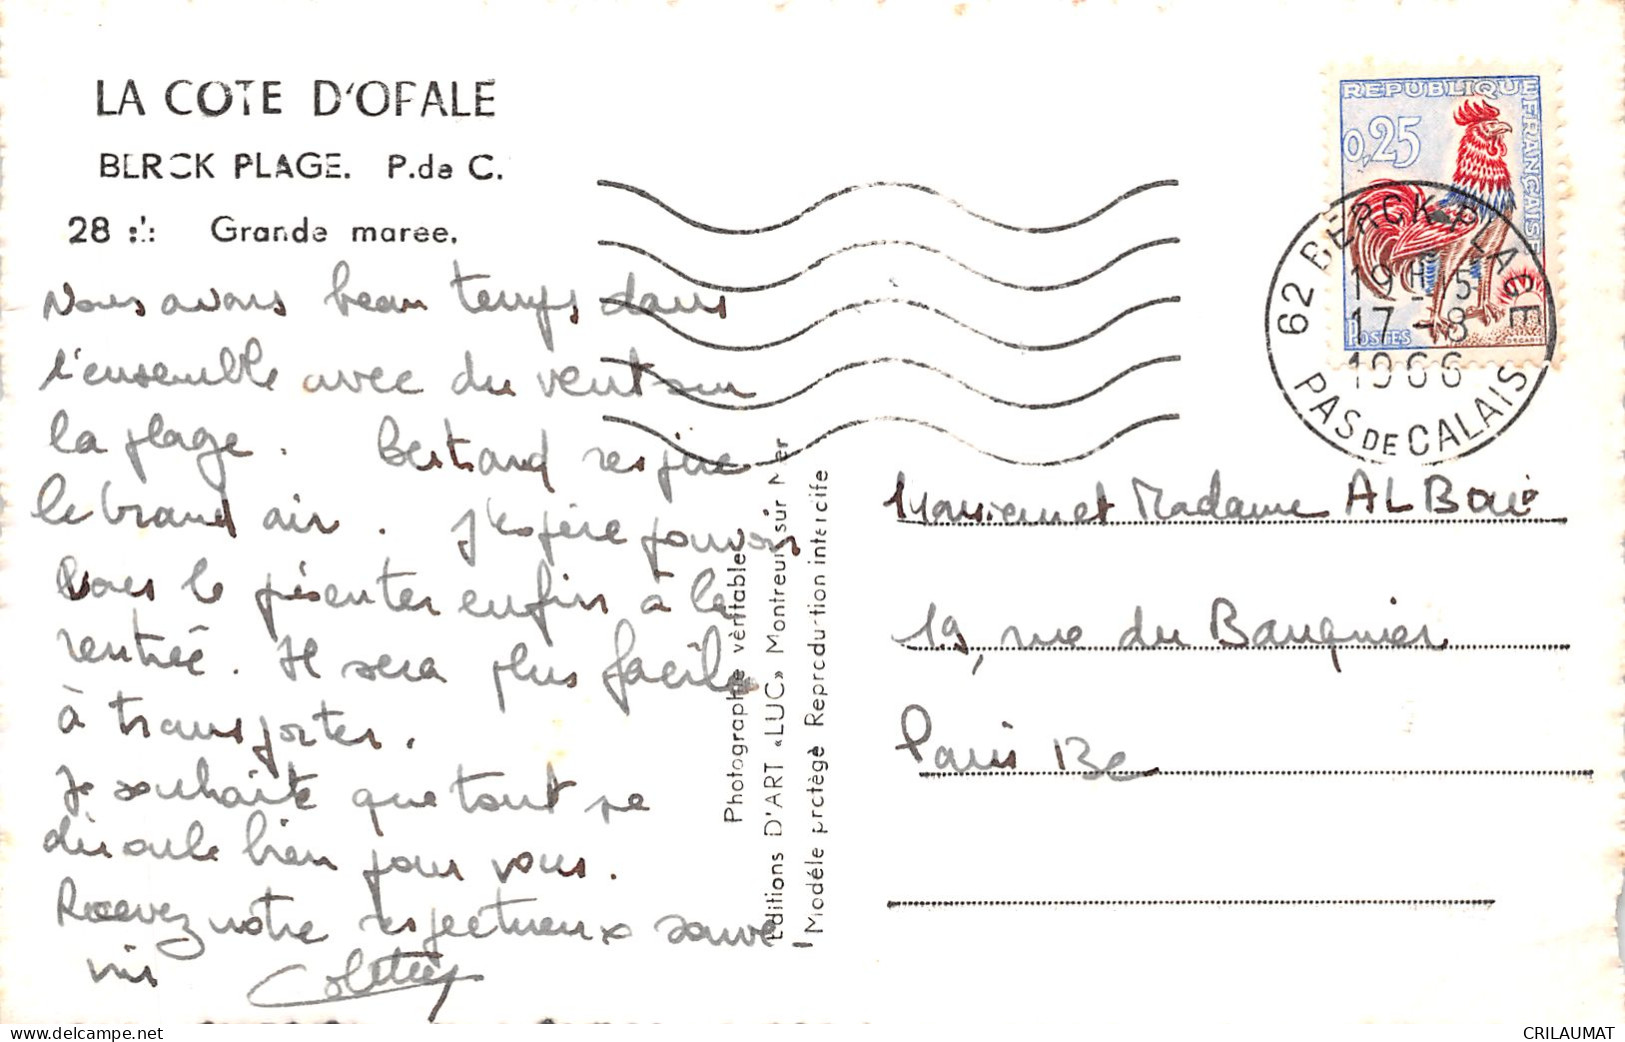 LA COTE D'OPALE
BERCK PLAGE. P. de C.
28 Grande marée.
Nous avons beau temps dans
l'ensemble avec du vent sur
la plage. Bertrand respire
le grand air. J'espère pouvoir
vous le présenter enfin à la
rentrée. Il sera plus facile
à transporter.
Je souhaite que tout se
déroule bien pour vous.
Recevez notre respectueux souve-
nir
Photographie véritable
Editions D'ART «LUC» Montreuil sur Mer
Modéle protégé Reproduction interdite
REPUBLIQUE FRANÇAISE
0,25
POSTES
DECARIS
62 BERCK-PLAGE
19H15
17-8
1966
PAS DE CALAIS
Monsieur et Madame ALBOUÉ
19, rue du Banquier
Paris 13e
www.delcampe.net
CRILAUMAT